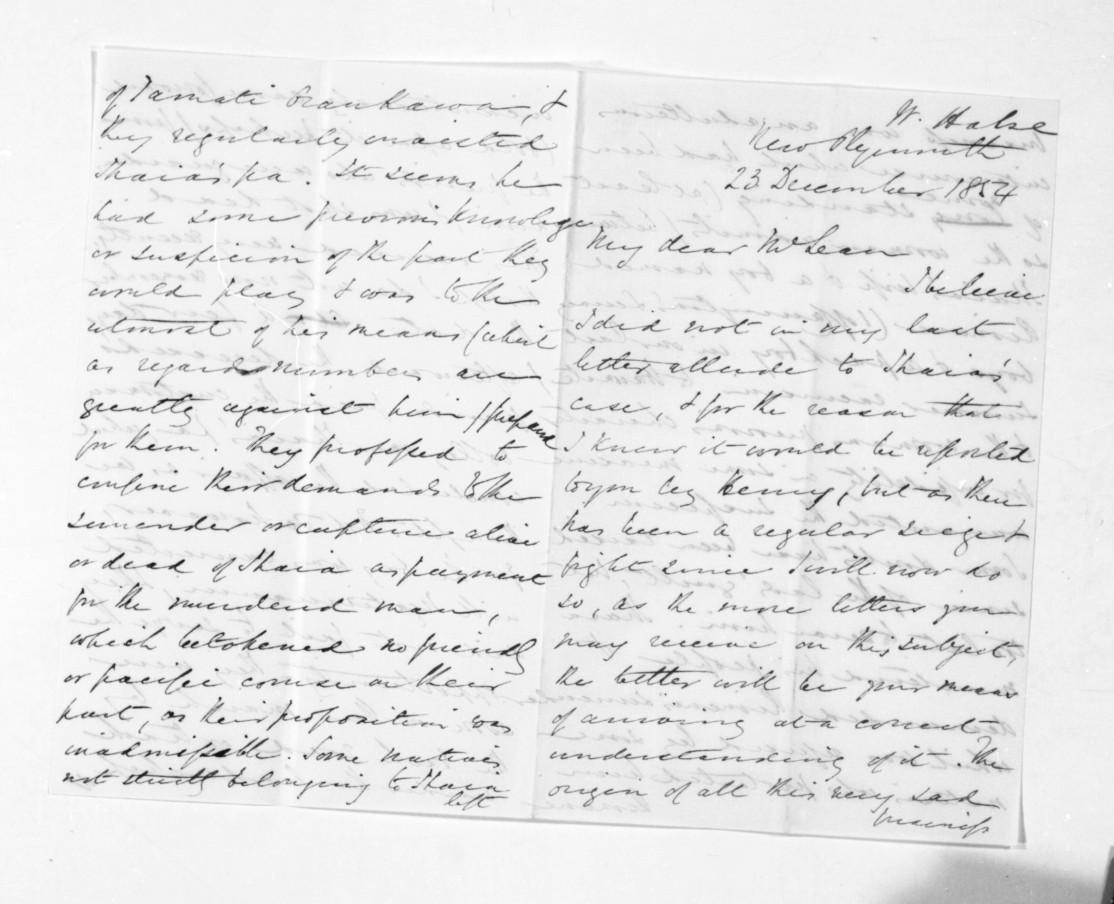 W. Halse
New Plymouth
23 December 1854
My dear McLean
I believe
I did not in my last
letter allude to Ihaia's
case, & for the reason that
I knew it would be reported
to you by Henry, but as there
has been a regular seige &
fight since I will now do
so, as the more letters you
may receive on this subject,
the better will be your means
of arriving at a correct
understanding of it. The
origin of all this very sad
business
of Tamati &
they regularly invested
Ihaia's pa. It seems he
had some previous knowledge
or suspicion of the part they
would play & was to the
utmost of his means (which
as regards numbers are
greatly against him) prepared
for them. They professed to
confine their demands to the
surrender or capture alive
or dead of Ihaia as payment
for the murdered man,
which betokened no friendly
or pacific course on their
part, as their proposition was
inadmissible. Some natives
not strictly belonging to Ihaia
left